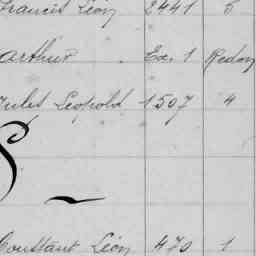 Francis Léon 2441 5
Arthur Ex. 1 Redon
Jules Léopold 1507 4
S
Constant Léon 470 1